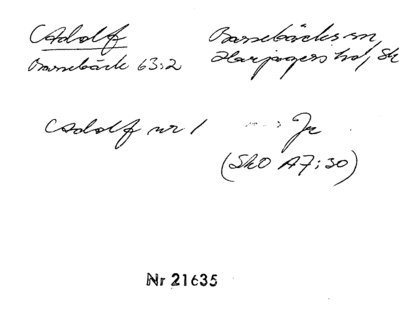 Adolf
Barsebäck 63:2
Barsebäcks sn,
Harjagers hd, Sk
Adolf nr 1
Jr
(SkO A7:30)
Nr 21635